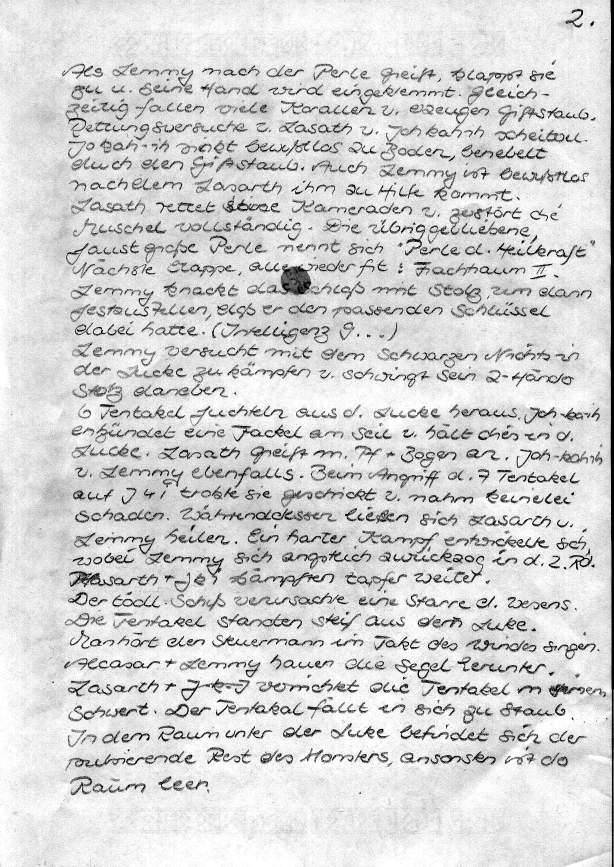 2.
Als Lemmy nach der Perle greift, klappt sie
zu u. seine Hand wird eingeklemmt. Gleich-
zeitig fallen viele Korallen u. erzeugen Giftstaub.
Rettungsversuche v. Lasath u. Joh kah ih scheitern.
Jo kah-ih sinkt bewußtlos zu Boden, benebelt
durch den Giftstaub. Auch Lemmy ist bewußtlos
nachdem Lasarth ihm zu Hilfe kommt.
Lasath rettet Kameraden u. zerstört die
Muschel vollständig. Die übriggebliebene,
faust große Perle nennt sich "Perle d. Heilkraft"
Nächste Etappe, alle wieder fit: Frachtraum II.
Lemmy knackt das Schloß mit Stolz, um dann
festzustellen, daß er den passenden Schlüssel
dabei hatte. (Intelligenz 9...)
Lemmy versucht mit dem Schwarzen Nichts in
der Lucke zu kämpfen u. schwingt sein 2-Händer
Stolz daneben.
6 Tentakel fuchteln aus d. Lucke heraus. Joh-kah-ih
entzündet eine Fackel am Seil u. hält dies in d.
Lucke. Lasath greift m. Pf + Bogen an. Joh-kah-ih
u. Lemmy ebenfalls. Beim Angriff d. 7 Tentakel
auf trotzte sie geschickt u. nahm keinerlei
Schaden. Währenddessen ließen sich Lasarth u.
Lemmy heilen. Ein harter Kampf entwickelte sich,
wobei Lemmy sich ängstlich zurückzog in d. 2. Rd.
Lasarth + kämpften tapfer weiter.
Der tödl. Schuß verursachte eine Starre d. Wesens.
Die Tentakel standen steif aus dem Luke.
Man hört den Steuermann im Takt des Windes singen.
Alcasar + Lemmy hauen die Segel herunter.
Lasarth + J-k-I vernichtet die Tentakel m
Schwert. Der Tentakal fällt in sich zu Staub.
In dem Raum unter der Luke befindet sich der
pulsierende Rest des Monsters, ansonsten ist do
Raum leer.